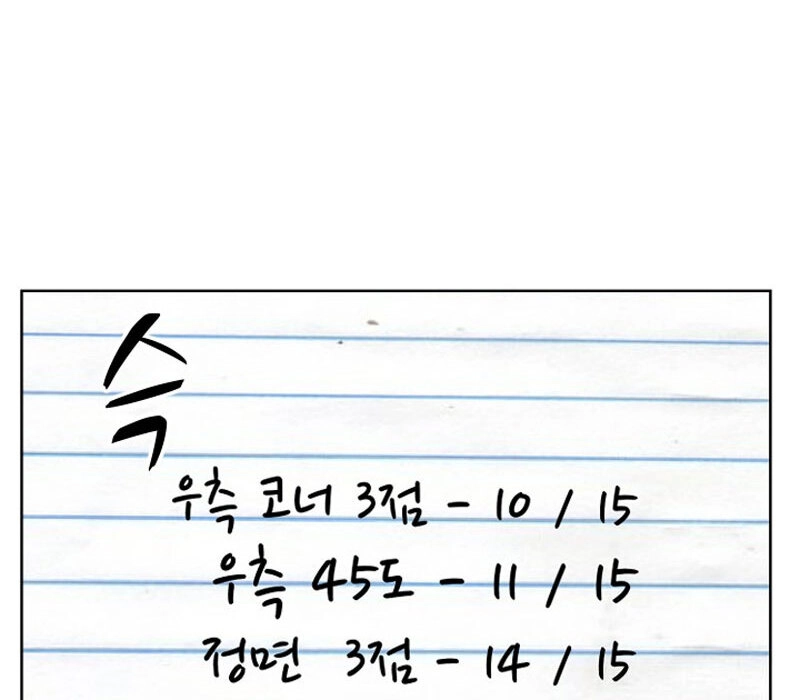 슥
우측 코너 3점 - 10 / 15
우측 45도 - 11 / 15
정면 3점 - 14 / 15